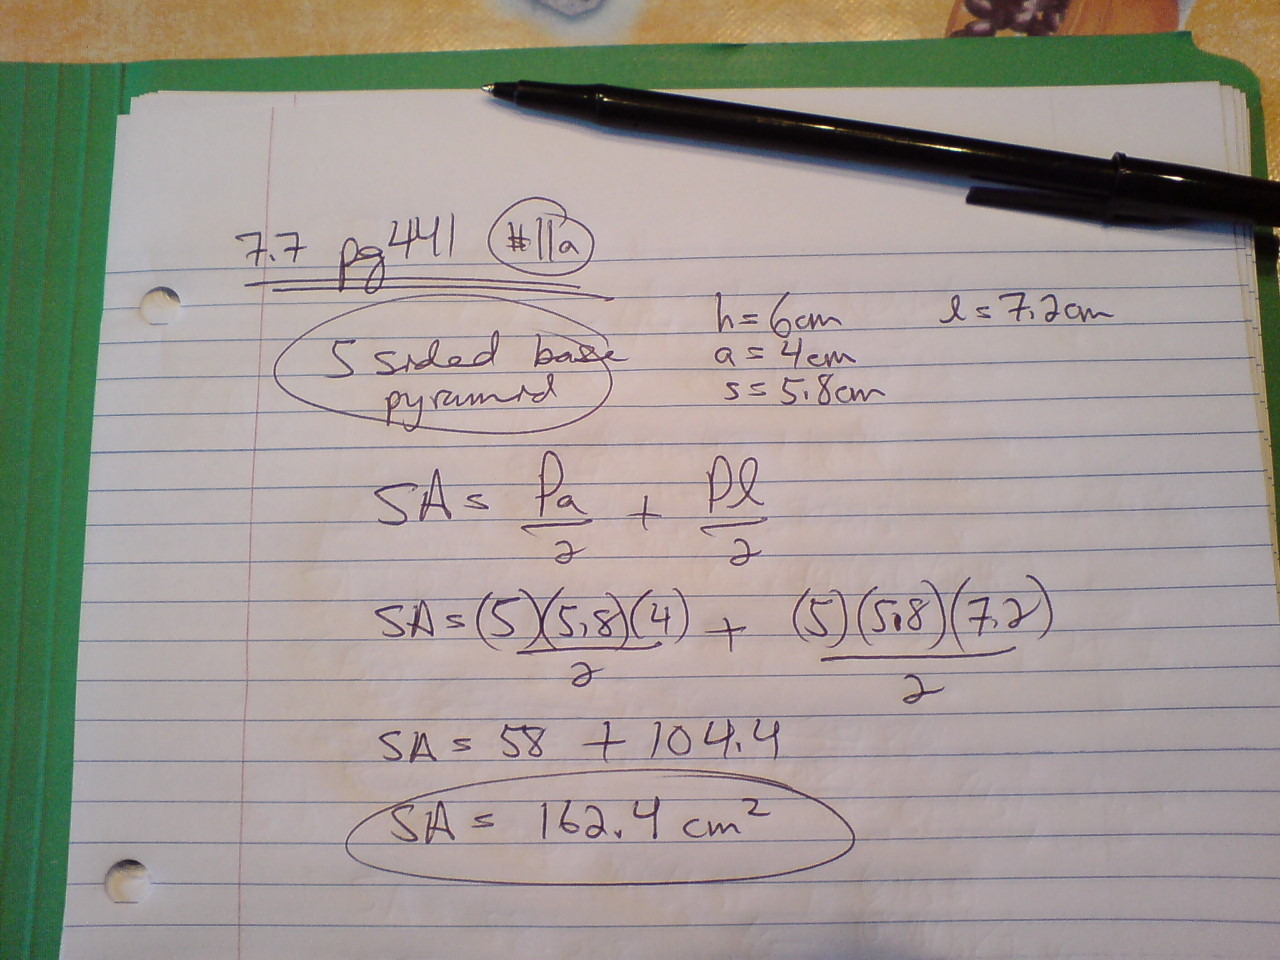 7.7 pg 441 #11a
5 sided base
pyramid
h = 6cm
l = 7.2cm
a = 4cm
s = 5.8cm
SA = Pa/2 + Pl/2
SA = (5)(5.8)(4)/2 + (5)(5.8)(7.2)/2
SA = 58 + 104.4
SA = 162.4 cm²